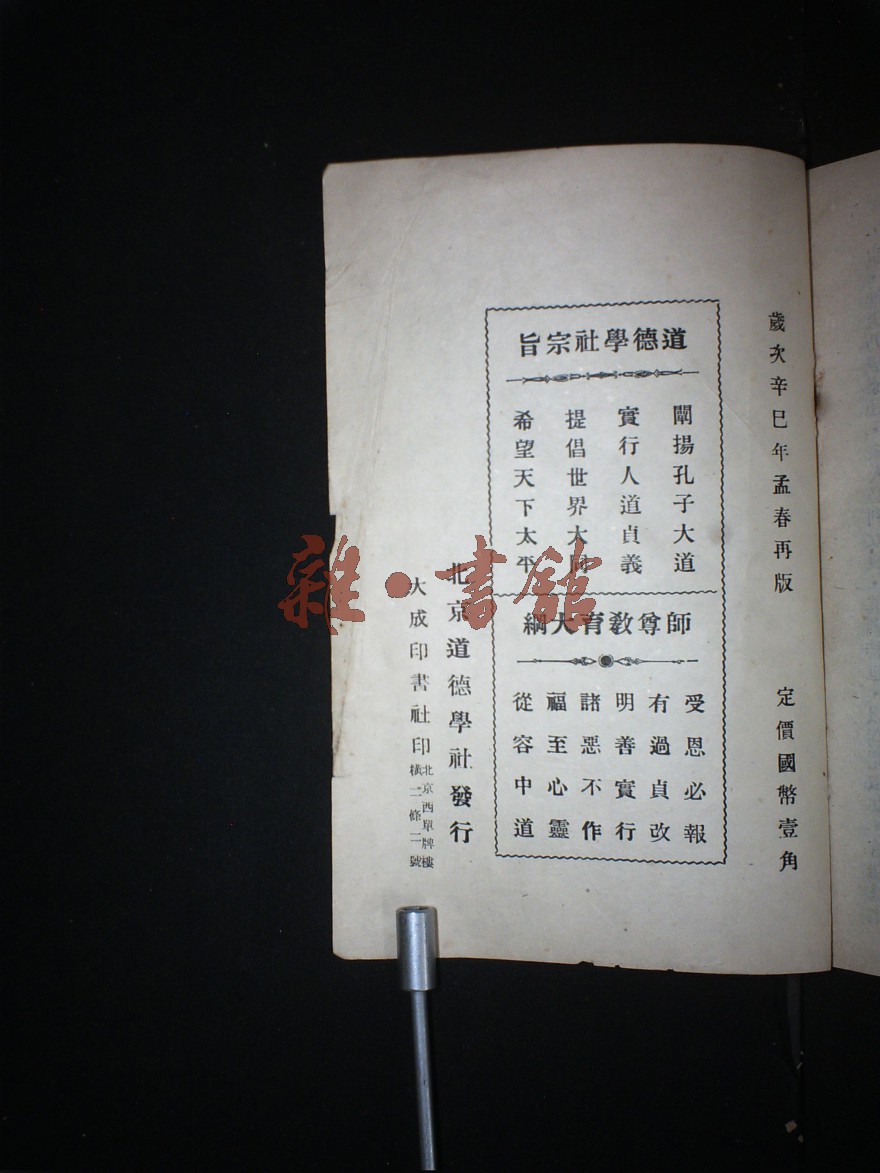 歲次辛巳年孟春再版
定價國幣壹角
道德學社宗旨
闡揚孔子大道
實行人道貞義
提倡世界大同
希望天下太平
師尊教育大綱
受恩必報
有過貞改
明善實行
諸惡不作
福至心靈
從容中道
北京道德學社發行
大成印書社印
北京西單牌樓
橫二條二號
雜·書館